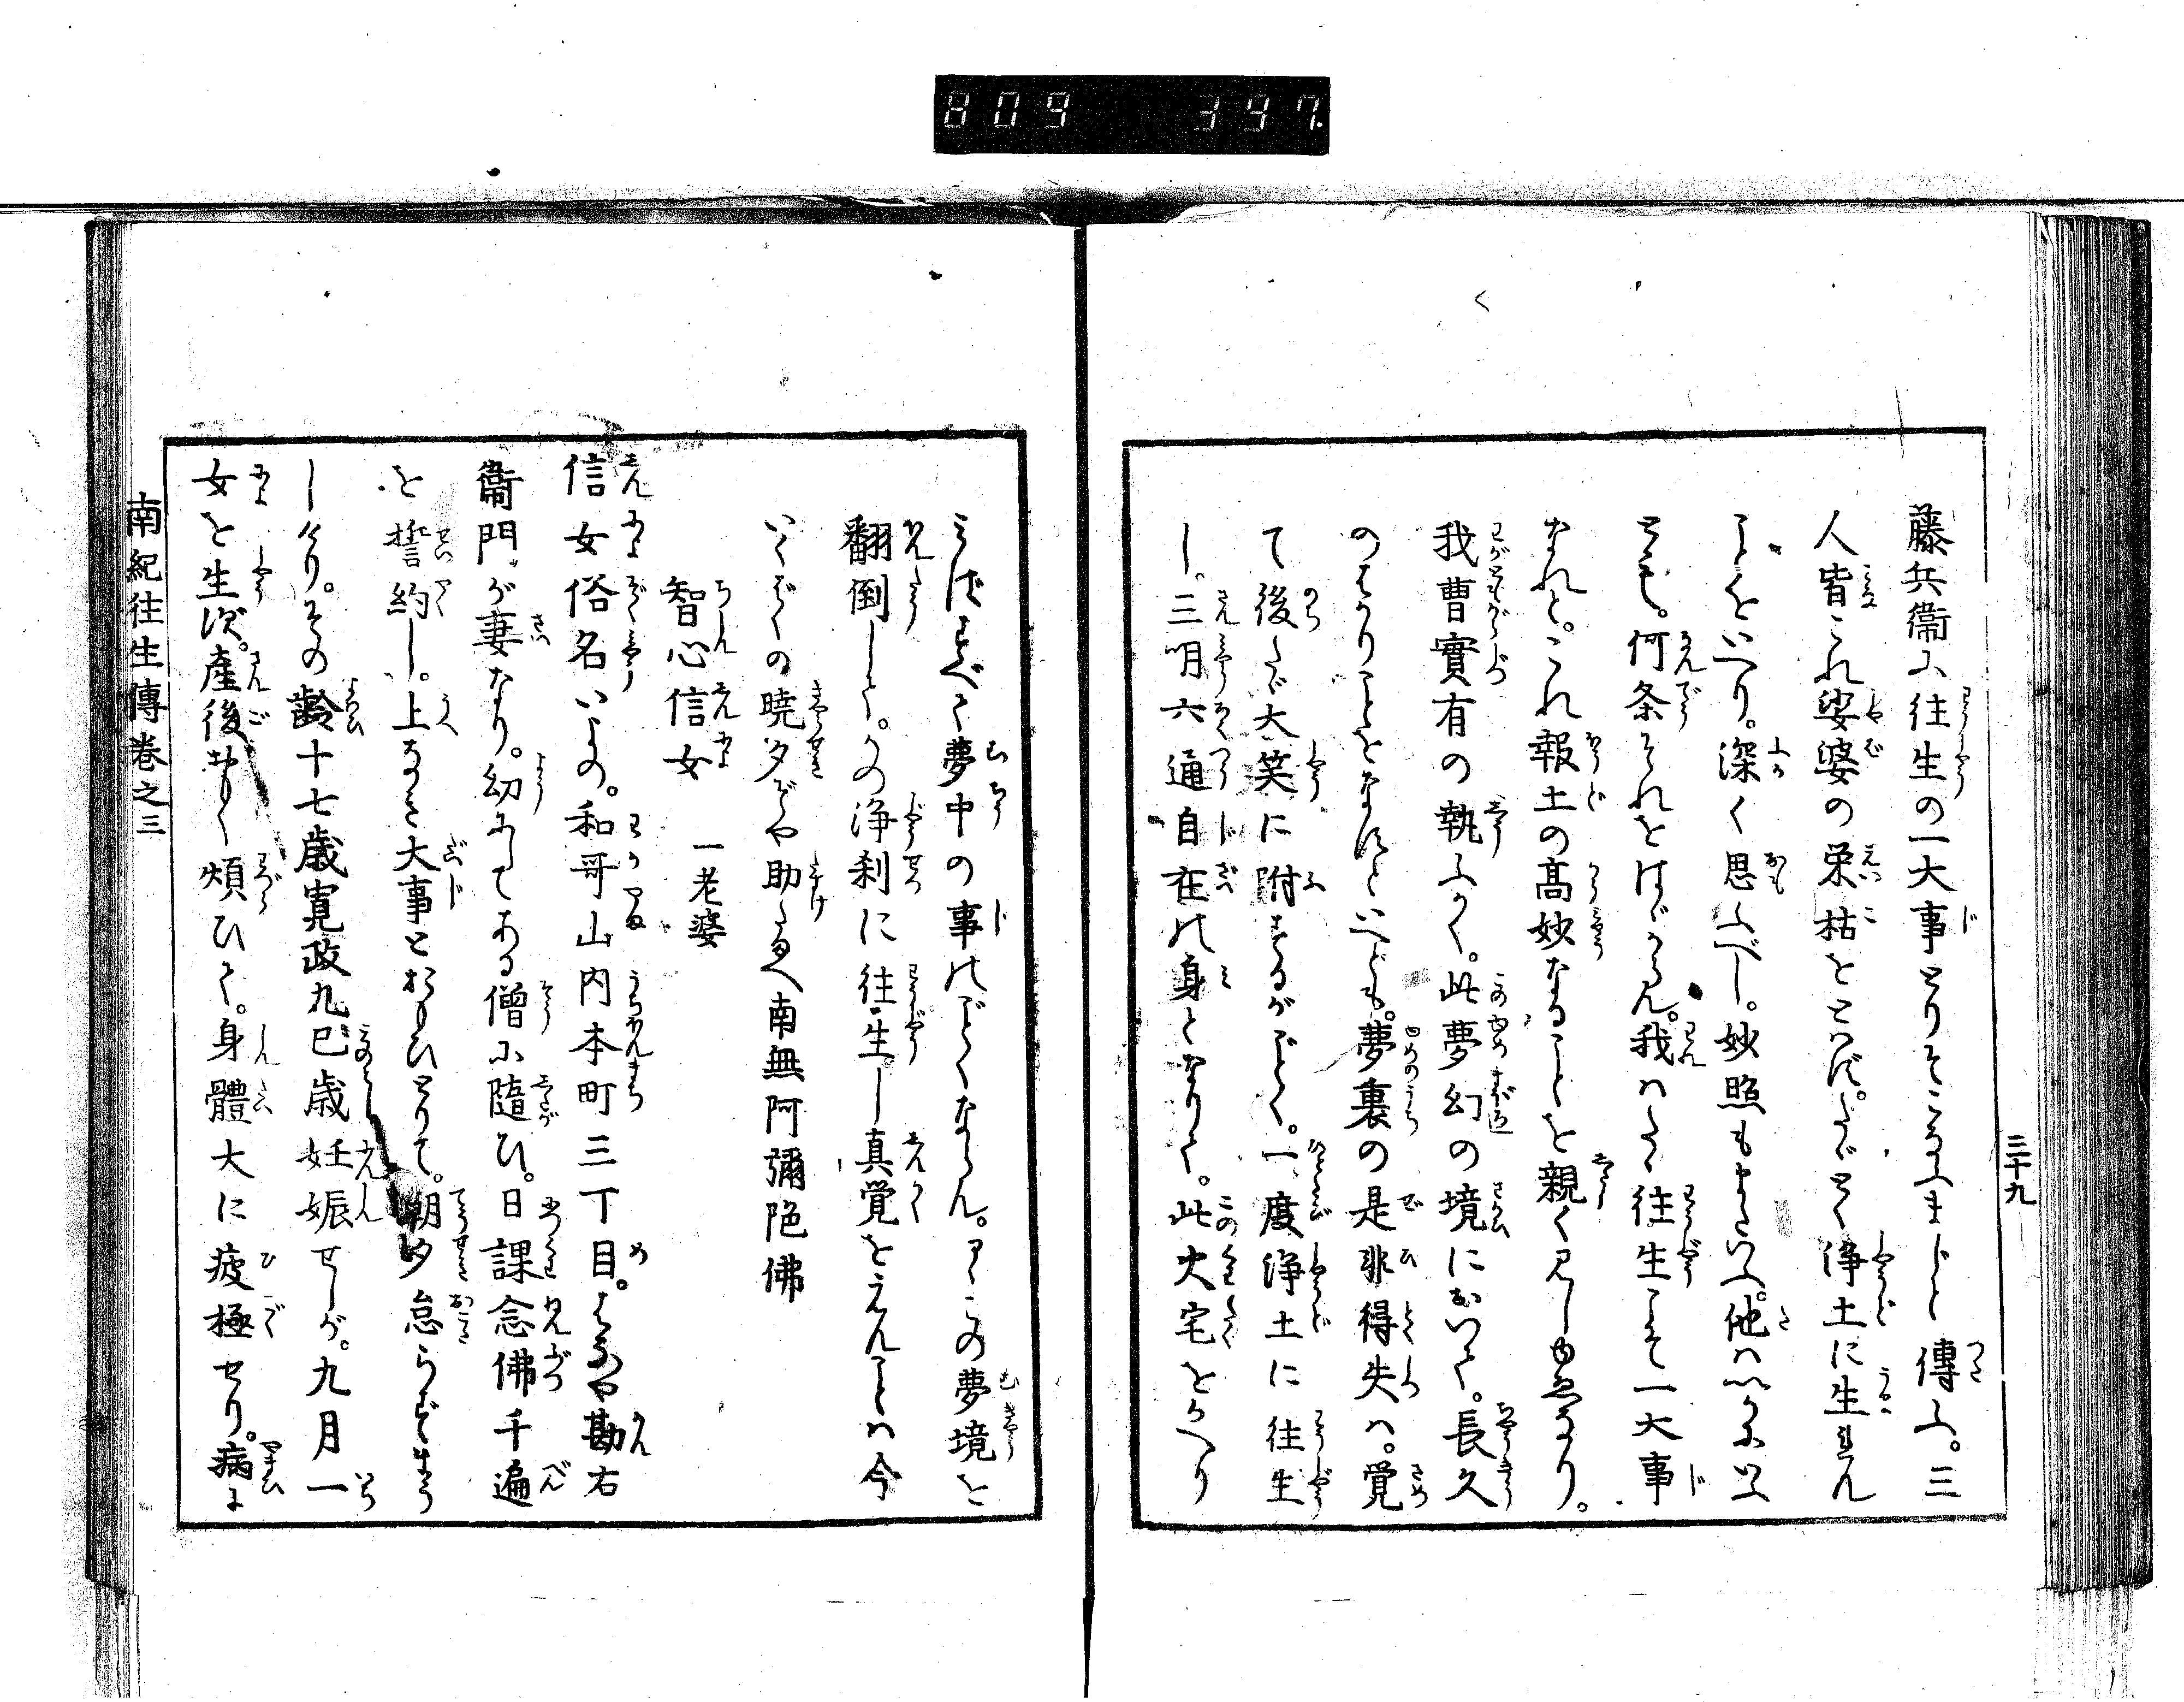 809 397.
三十九
藤兵衞に往生の一大事とりそこなふまじと傳ふ。三
人皆これ娑婆の栄枯をとはず。たゞ〳〵浄土に生れん
ことをいへり。深く思ふべし。妙照もまたいふ。他はいかにいふ
とも。何条それをはゞからん。我はたゞ往生こそ一大事
なれと。これ報土の高妙なることを親く見しゆゑなり。
我曹實有の執ふかく。此夢幻の境において。長久
のはかりことをなすといへども。夢裏の是非得失は。覚
て後たゞ大笑に附するがごとく。一度浄土に往生
し。三明六通自在の身となりて。此火宅をかへり
みばすべて夢中の事のごとくならん。この夢境を
翻倒して。かの浄刹に往生し真覚をえんことは今
いくばくの暁夕ぞや助たまへ南無阿彌陀佛
智心信女　一老婆
信女俗名いよの。和哥山内本町三丁目。はなや勘右
衞門が妻なり。幼にしてある僧に随ひ。日課念佛千遍
を誓約し。上なき大事とおもひとりて。朝夕怠らずまう
しけり。その齢十七歳寛政九巳歳妊娠せしが。九月一
女を生ず。産後あしく煩ひて。身體大に疲極せり。病に
南紀往生傳巻之三